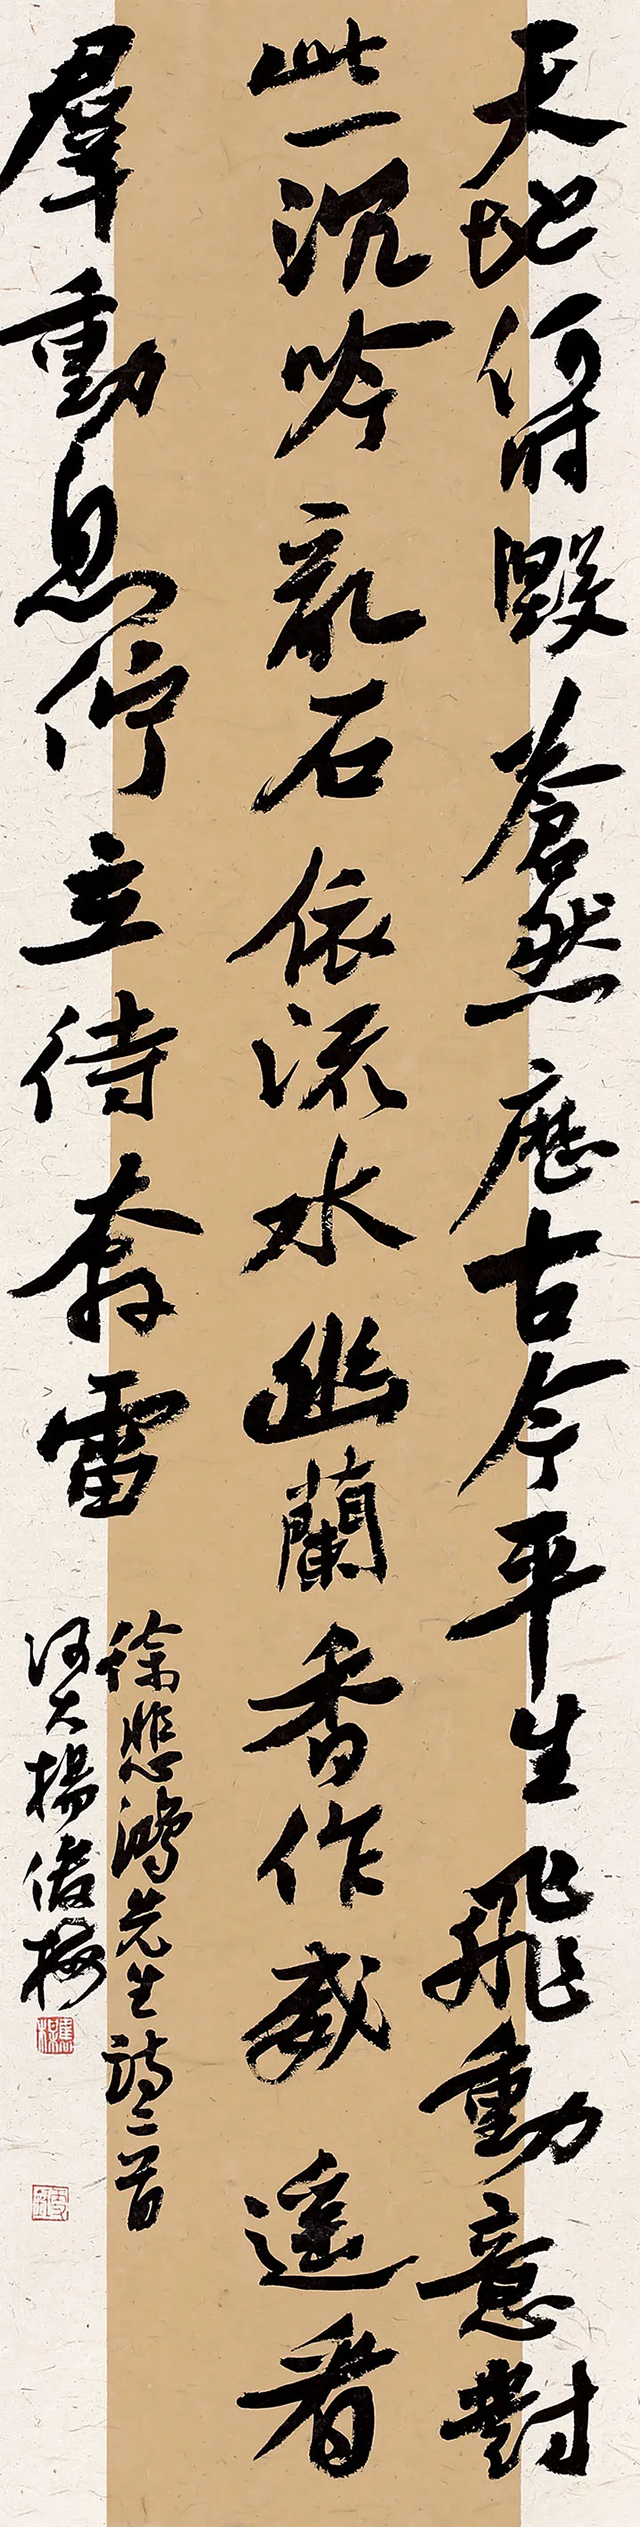 天地何時毀蒼然歷古今平生飛動意對
此一沉吟亂石依流水幽蘭香作威遙看
羣動息佇立待奔雷
徐悲鴻先生詩二首
河大楊梅